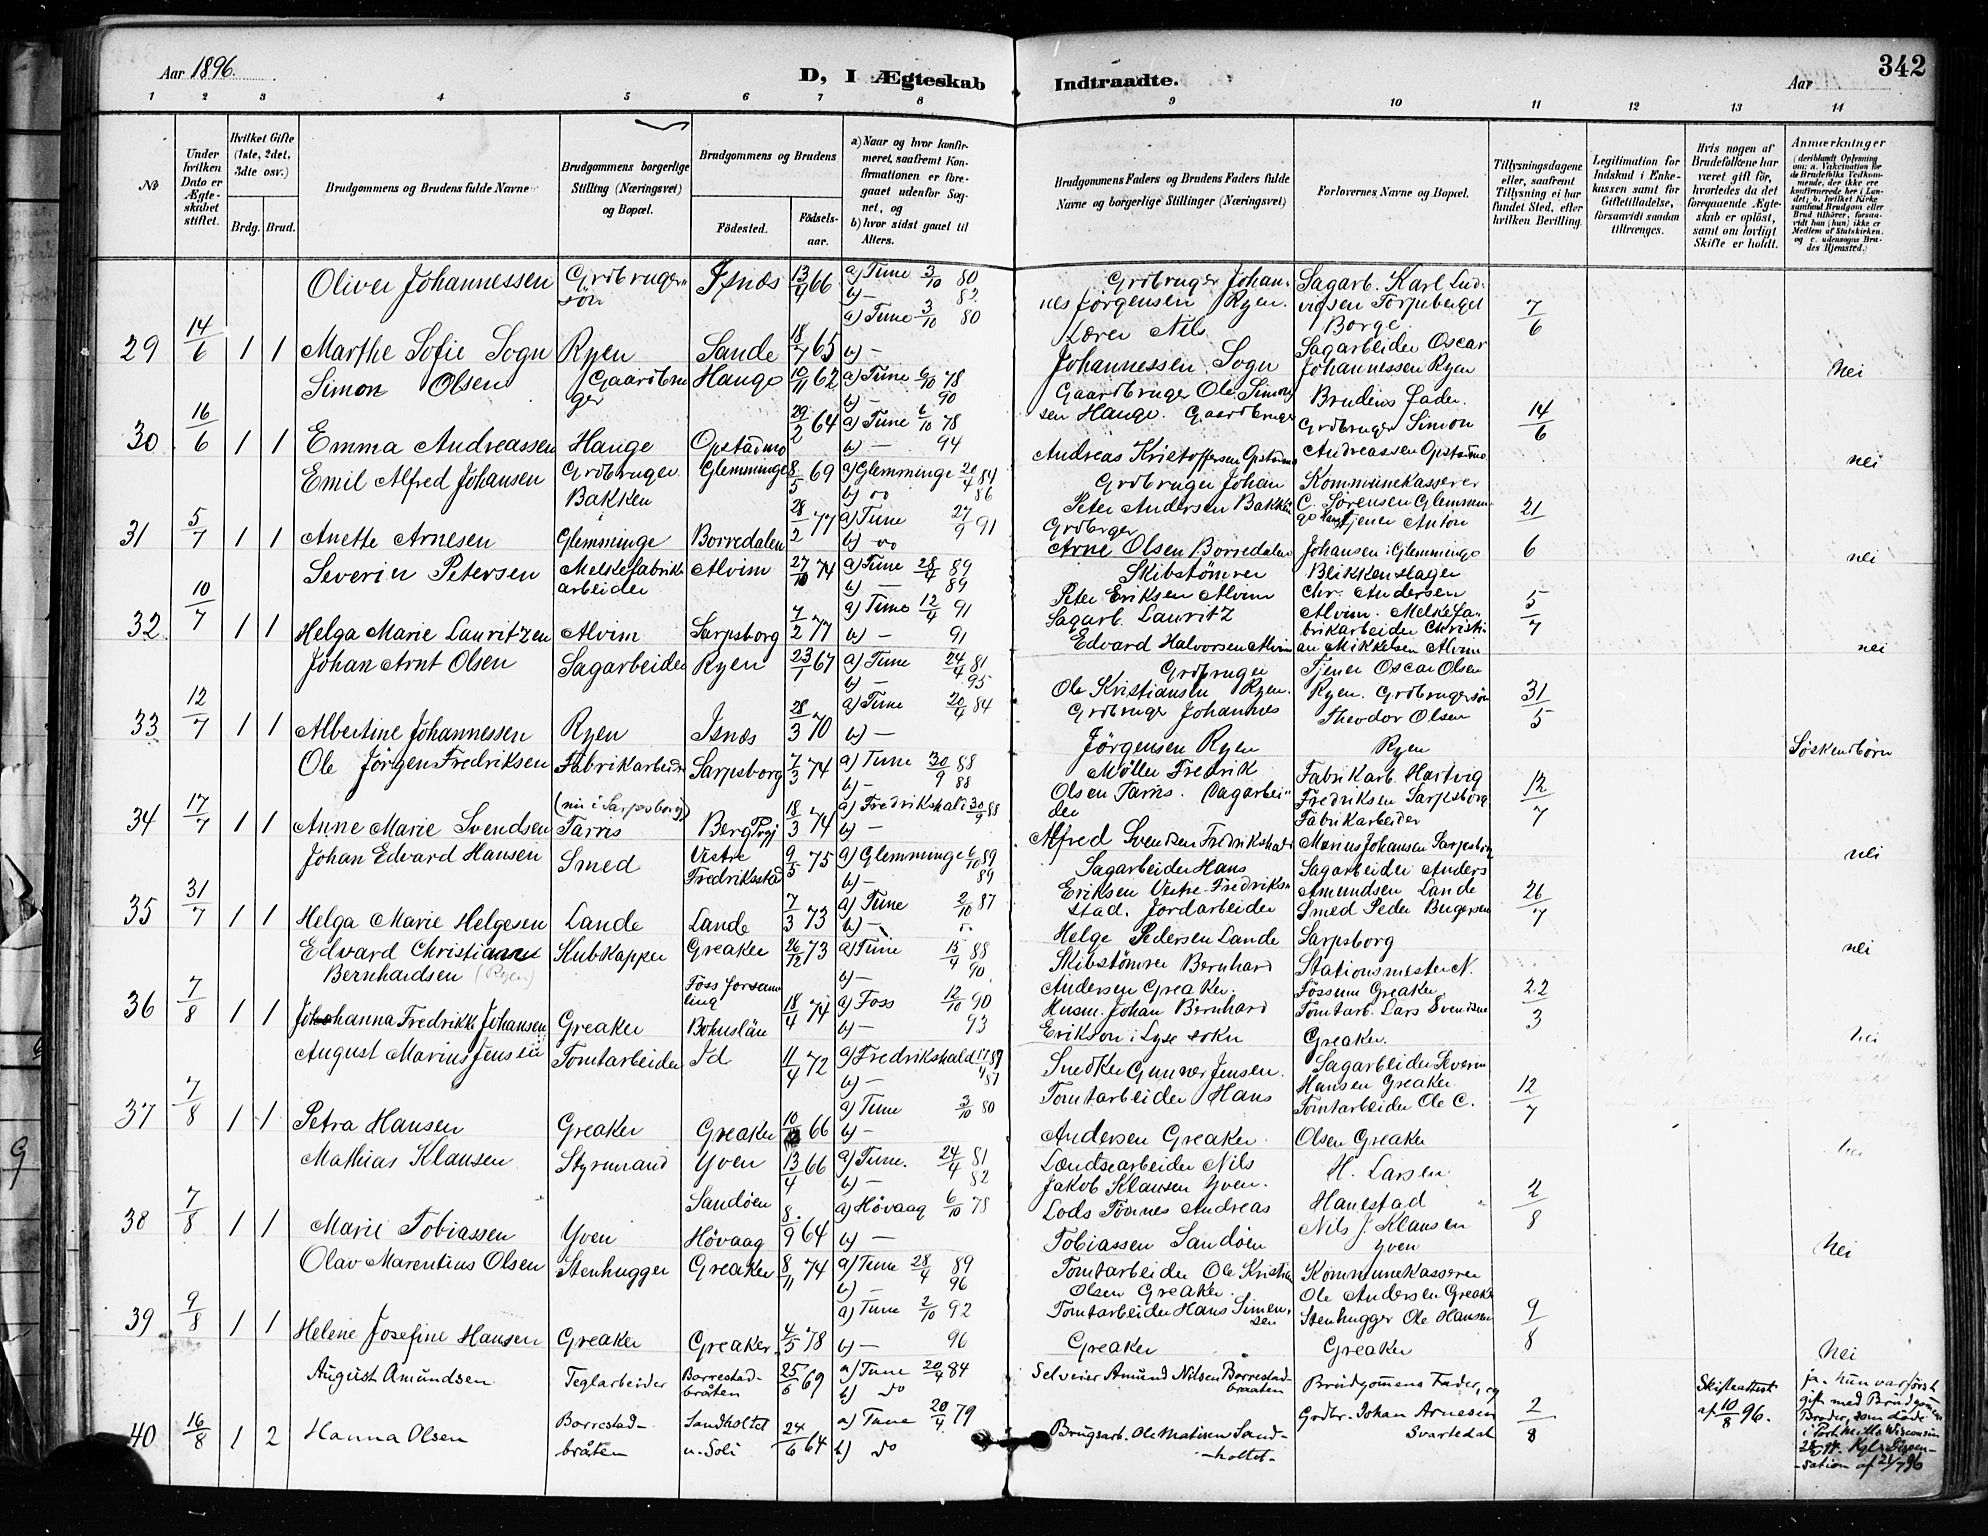 Aar 1896.
D, I Ægteskab
Indtraadte.
Aar
342
1 2 3 4 5 6 7 8 9 10 11 12 13 14
No
Under hvilken Dato er Ægteskabet stiftet.
Hvilket Gifte (1ste, 2det, 3die osv.)
Brdg. Brud.
Brudgommens og Brudens fulde Navne
Brudgommens borgerlige Stilling (Næringsvei) og Bopæl.
Brudgommens og Brudens
Födested. Födselsaar.
a) Naar og hvor konfirmeret, saafremt Konfirmationen er foregaaet udenfor Sognet, og
b) hvor sidst gaaet til Alters.
Brudgommens Faders og Brudens Faders fulde Navne og borgerlige Stillinger (Næringsvei)
Forlovernes Navne og Bopæl.
Tillysningsdagene eller, saafremt Tillysning ei har fundet Sted, efter hvilken Bevilling.
Legitimation for Indskud i Enkekassen samt for Giftetilladelse, forsaavidt saadan tiltrænges.
Hvis nogen af Brudefolkene har været gift för, hvorledes da det foregaaende Ægteskab er oplöst, samt om lovligt Skifte er holdt.
Anmærkninger
Oliver Johannessen Grdbrugersön Isnæs 13/4 66 a) Tune 3/10 80 b) — 82
Grdbruger Johannes Jörgensen Ryen. Sagarb. Karl Ludvigsen Torpeberget Borge
29 14/6 1 1 Marthe Sofie Sogn Ryen Sande 18/7 65 a) Tune 3/10 80 b) —
Lærer Nils Johannessen Sogn Sagarbeider Oscar Johannessen Ryen 7/6 Nei
Simon Olsen Gaardbruger Hauge 10/11 62 a) Tune 6/10 78 b) — 90
Gaardbruger Ole Simonsen Hauge. Brudens Fader.
30 16/6 1 1 Emma Andreassen Hauge Opstadmo 29/2 64 a) Tune 6/10 78 b) — 94
Gaardbruger Andreas Kristoffersen Opstadmo Grdbruger Simon Andreassen Opstadmo 14/6 nei
Emil Alfred Johansen Grdbruger Bakken Glemminge 8/5 69 a) Glemminge 20/4 84 b) do 86
Grdbruger Johan Peter Andersen Bakken Kommunekasserer C. Sørensen Glemminge
31 5/7 1 1 Anette Arnesen Glemminge Borredalen 28/2 77 a) Tune 27/9 91 b) do
Grdbrger Arne Olsen Borredalen tjener Anton Johansen i Glemminge 21/6 nei
Severin Petersen Melkefabrikarbeider Alvim 27/10 74 a) Tune 28/4 89 b) — 89
Skibstömrer Peter Eriksen Alvim Blikkenslager Chr. Andersen Alvim.
32 10/7 1 1 Helga Marie Lauritzen Alvim Sarpsborg 7/2 77 a) Tune 12/4 91 b) — 91
Sagarb. Lauritz Edvard Halvorsen Alvim Melkefabrikarbeider Christian Mikkelsen Alvim 5/7 nei
Johan Arnt Olsen Sagarbeider Ryen 23/1 67 a) Tune 24/4 81 b) — 95
Grdbruger Ole Kristiansen Ryen. Tjener Oscar Olsen Ryen.
33 12/7 1 1 Albertine Johannessen Ryen Isnæs 28/3 70 a) Tune 20/4 84 b) —
Grdbruger Johannes Jörgensen Ryen Grdbrugersön Theodor Olsen Ryen 31/5 Söskendbörn
Ole Jörgen Fredriksen Fabrikarbeider (nu i Sarpsborg) Sarpsborg 7/3 74 a) Tune 30/9 88 b) — 88
Möller Fredrik Olsen Tarris. Fabrikarb. Hartvig Fredriksen Sarpsborg
34 17/7 1 1 Anne Marie Svendsen Tarris Berg Prgj 18/3 74 a) Fredrikshald 30/9 88 b) —
Dagarbeider Alfred Svendsen Fredrikshald Fabrikarbeider Marius Johansen Sarpsborg 12/7 nei
Johan Edvard Hansen Smed Vestre Fredriksstad 9/5 75 a) Glemminge 6/10 89 b) — 89
Sagarbeider Hans Eriksen Vestre Fredriksstad. Sagarbeider Anders Amundsen Lande
35 31/7 1 1 Helga Marie Helgesen Lande Lande 7/3 73 a) Tune 2/10 87 b) —
Jordarbeider Helge Pedersen Lande Smed Peder Birgersen Sarpsborg 26/7 nei
Edvard Christian Bernhardsen (Ryen) Kubskapper Greaker 26/12 73 a) Tune 15/4 88 b) — 90
Skibstömrer Bernhard Andersen Greaker. Stationsmester N. Fossum Greaker.
36 7/8 1 1 Johanna Fredrikke Johansen Greaker Foss forsamling Bohuslän 18/4 74 a) Foss 12/10 90 b) — 93
Husm. Johan Bernhard Erikson i Lyse sokn Tomtarb. Lars Svendsen Greaker. 22/3 nei
August Marius Jensen Tomtarbeider Id 11/4 72 a) Fredrikshald 17/4 87 b) — 87
Snedker Gunner Jensen. Sagarbeider Severin Hansen Greaker.
37 7/8 1 1 Petra Hansen Greaker Greaker 10/10 66 a) Tune 3/10 80 b) —
Tomtarbeider Hans Andersen Greaker. Tomtarbeider Ole C. Olsen Greaker 12/7 nei
Mathias Klausen Styrmand Yven 13/4 66 a) Tune. 24/4 81 b) — 82
Lændsearbeider Nils Jakob Klausen Yven. H. Larsen Hanestad
38 7/8 1 1 Marie Tobiassen Yven Sandöen Hövaag 8/9 64 a) Hövaag 6/10 78 b) —
Lods Tönnes Andreas Tobiassen Sandöen Nils J. Klausen Yven 2/8 Nei
Olav Marentius Olsen Stenhugger Greaker 8/11 74 a) Tune 28/4 89 b) — 96
Tomtarbeider Ole Kristian Olsen Greaker. Kommunekasserer Ole Andersen Greaker
39 9/8 1 1 Helene Josefine Hansen Greaker Greaker. 4/5 78 a) Tune 2/10 92 b) — 96
Tomtarbeider Hans Simensen Greaker Stenhugger Ole Hansen Greaker 9/8 Nei
August Amundsen Teglarbeider Borrestadbråten 25/5 69 a) Tune 20/4 84 b) do
Selveier Amund Nilsen Borrestadbraaten Brudgomens Fader, og
40 16/8 1 2 Hanna Olsen Borrestadbråten Sandholtet u. Soli 24/6 64 a) Tune 20/4 79 b) do
Brugsarb. Ole Matisen Sandholtet Grdbr. Johan Arnesen Svartedal 2/8
Skifteattest af 10/8 96.
ja. hun var först gift med Brudgommens Broder, som döde i Wisconsin Kgl. Dispensation af 21/7 96